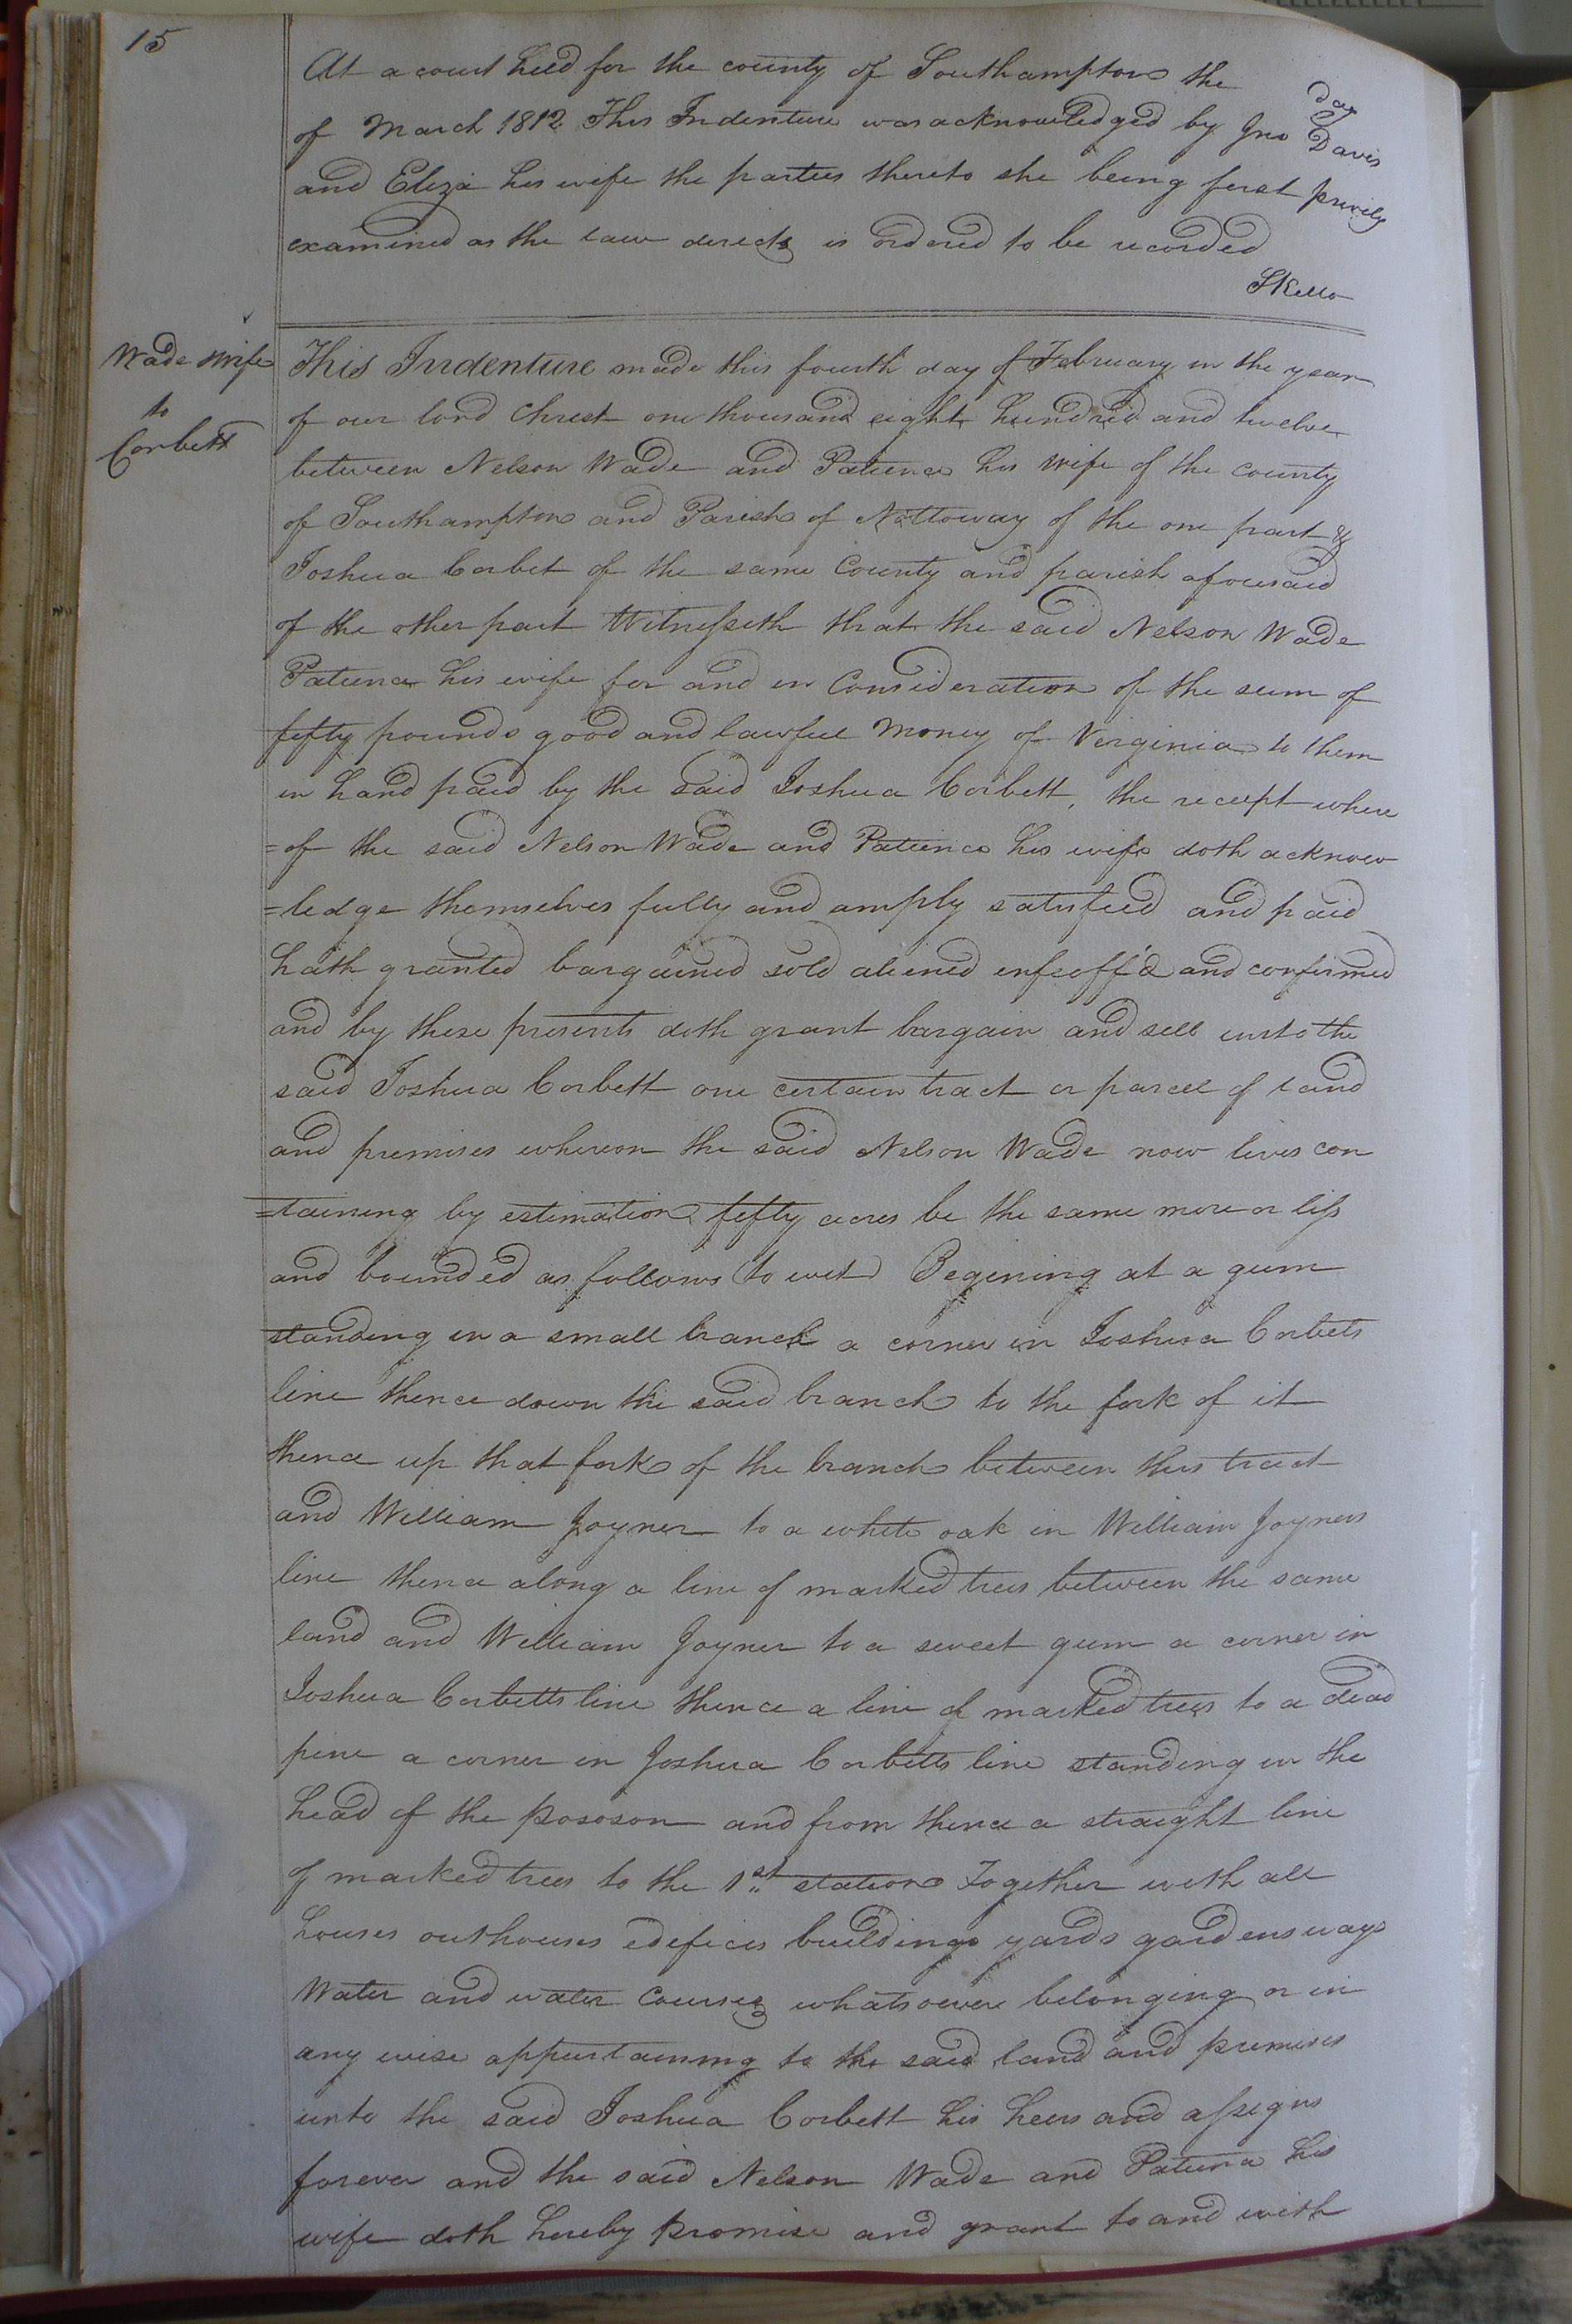 15
At a court held for the county of Southampton the day
of March 1812 This Indenture was acknowledged by Jno Davis
and Eliza his wife the parties thereto she being first privily
examined as the law directs is ordered to be recorded
SKello
Wade & wife
to
Corbett
This Indenture made this fourth day of February in the year
of our lord Christ one thousand eight hundred and twelve
between Nelson Wade and Patience his wife of the county
of Southampton and Parish of Nottoway of the one part &
Joshua Corbet of the same County and parish aforesaid
of the other part Witnesseth that the said Nelson Wade
Patience his wife for and in Consideration of the sum of
fifty pounds good and lawful Money of Virginia to them
in hand paid by the said Joshua Corbett, the receipt where
=of the said Nelson Wade and Patience his wife doth acknow
=ledge themselves fully and amply satisfied and paid
hath granted bargained sold aliened enfeoff'd and confirmed
and by these presents doth grant bargain and sell unto the
said Joshua Corbett one certain tract or parcel of land
and premises whereon the said Nelson Wade now lives con
=taining by estimation fifty acres be the same more or less
and bounded as follows (to wit) Begining at a gum
standing in a small branch a corner in Joshua Corbets
line thence down the said branch to the fork of it
thence up that fork of the branch between this tract
and William Joyner to a white oak in William Joyners
line thence along a line of marked trees between the same
land and William Joyner to a sweet gum a corner in
Joshua Corbetts line thence a line of marked trees to a dead
pine a corner in Joshua Corbetts line standing in the
head of the pososon and from thence a straight line
of marked trees to the 1st station Together with all
houses outhouses edifices buildings yards gardens ways
Water and water Courses whatsoever belonging or in
any wise appertaining to the said land and premises
unto the said Joshua Corbett his heirs and assigns
forever and the said Nelson Wade and Patience his
wife doth hereby promise and grant to and with